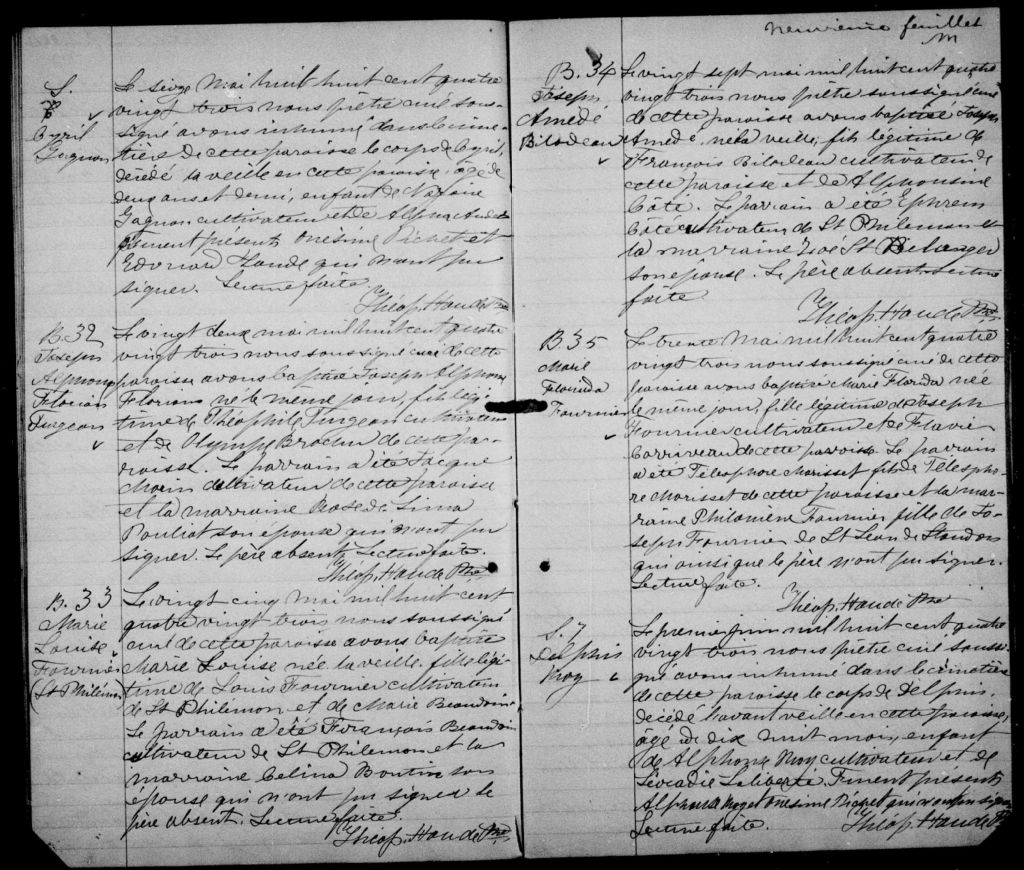 S.
Cyril
Gagnon
Le seize Mai mil huit cent quatre
vingt trois nous prêtre curé sous-
signé avons inhumé dans le cime-
tière de cette paroisse le corps de Cyril,
décédé la veille en cette paroisse, âgé de
deux ans et demi, enfant de
Gagnon cultivateur et de
furent présents Onésime Pichet et
Edouard Houde qui n'ont pu
signer. Lecture faite.
Théop. Houde Ptre
B. 32
Joseph
Alphonse
Florian
Turgeon
Le vingt deux mai mil huit cent quatre
vingt trois nous soussigné curé de cette
paroisse avons baptisé Joseph Alphonse
Florian né le même jour, fils légi-
time de Théophile Turgeon cultivateur
et de Olymp Brochu de cette pa-
roisse. Le parrain a été Jacque
Morin cultivateur de cette paroisse
et la marraine Rose de Lima
Pouliot son épouse qui n'ont pu
signer. Le père absent. Lecture faite.
Théop. Houde Ptre
B. 33
Marie
Louise
Fournier
(St Philemon)
Le vingt cinq Mai mil huit cent
quatre vingt trois nous soussigné
curé de cette paroisse avons baptisé
Marie Louise née la veille, fille légi-
time de Louis Fournier cultivateur
de St Philemon et de Marie Beaudoin
Le parrain a été François Beaudoin
cultivateur de St Philemon et la
marraine Celina Boutin son
épouse qui n'ont pu signer le
père absent. Lecture faite.
Théop. Houde Ptre
neuvieme feuillet
B. 34
Joseph
Amédé
Bilodeau
Le vingt sept mai mil huit cent quatre
vingt trois nous prêtre soussigné curé
de cette paroisse avons baptisé Joseph
Amédé, né la veille, fils légitime de
François Bilodeau cultivateur de
cette paroisse et de Alphonsine
Côté. Le parrain a été Ephrem
Côté cultivateur de St Philemon et
la marraine Zoé Belanger
son épouse. Le père absent. Lecture
faite
Théop. Houde Ptre
B 35
Marie
Florida
Fournier
Le trente Mai mil huit cent quatre
vingt trois nous soussigné curé de cette
paroisse avons baptisé Marie Florida née
le même jour, fille légitime de Joseph
Fournier cultivateur et de Flavie
Corriveau de cette paroisse. Le parrain
a été Télesphore Morisset fils de Télespho
re Morisset de cette paroisse et la mar-
raine Philomène Fournier fille de Jo-
seph Fournier de St Léon de Standon
qui ainsi que le père n'ont pu signer.
Lecture faite.
Théop. Houde Ptre
S. 7
Delphis
Roy
Le premier Juin mil huit cent quatre
vingt trois nous prêtre curé soussi-
gné avons inhumé dans le cimetière
de cette paroisse le corps de Delphis,
décédé l'avant veille en cette paroisse,
âgé de dix huit mois, enfant
de Alphonse Roy cultivateur et de
Léocadie Laliberté. Furent présents
Alphonse Roy et Onesime Pichet qui n'ont pu signer
Lecture faite.
Théop. Houde Ptre